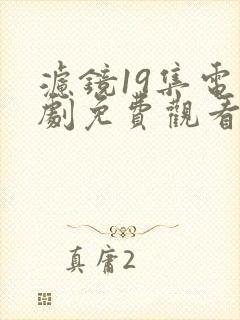 濾鏡19集電
劇免費觀看
真庸2